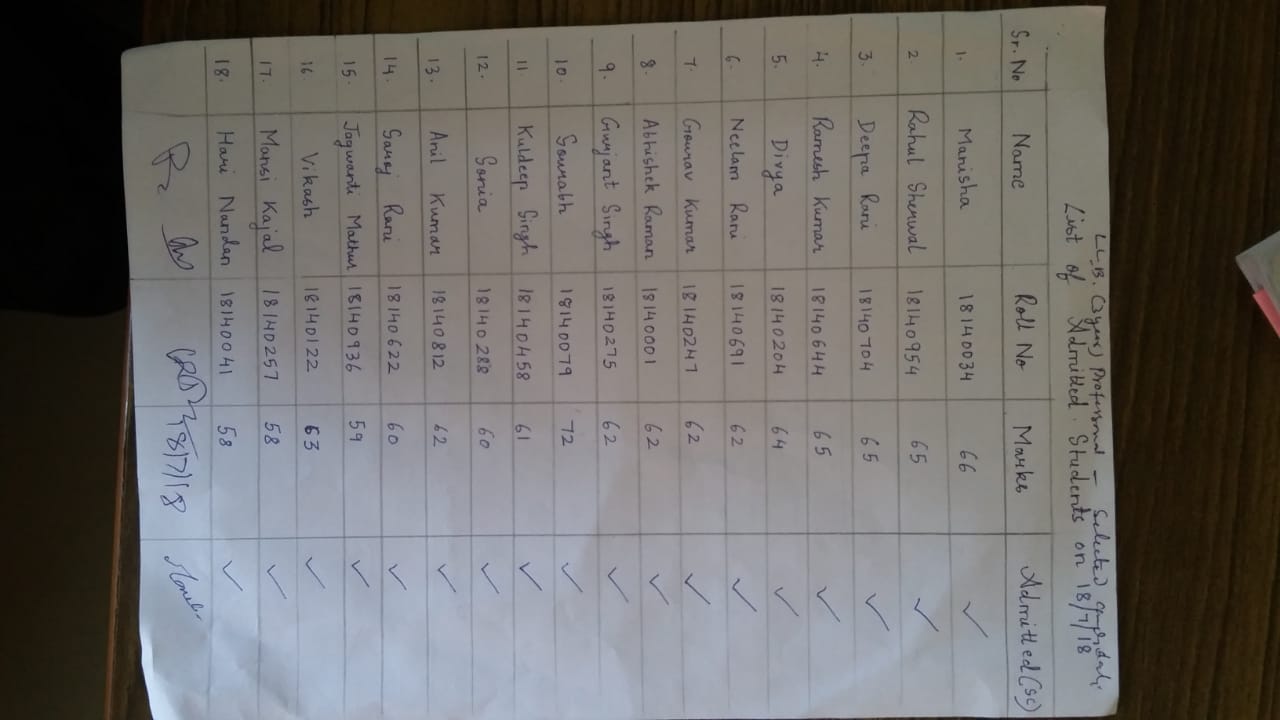 LL.B. (3 years) Professional - Selected
List of Admitted Students on 18/7/18
Sr. No Name Roll No Marks Admitted (SC)
1. Manisha 18140034 66 ✓
2 Rahul Sherwal 18140954 65 ✓
3. Deepa Rani 18140704 65 ✓
4. Ramesh Kumar 18140644 65 ✓
5. Divya 18140204 64 ✓
6. Neelam Rani 18140691 62 ✓
7. Gourav Kumar 18140247 62 ✓
8. Abhishek Raman 18140001 62 ✓
9. Gurjant Singh 18140275 62 ✓
10. Sourabh 18140079 72 ✓
11 Kuldeep Singh 18140458 61 ✓
12. Sonia 18140288 60 ✓
13. Anil Kumar 18140812 62 ✓
14. Saroj Rani 18140622 60 ✓
15. Jagwanti Mathur 18140936 59 ✓
16. Vikash 18140122 63 ✓
17. Mansi Kajal 18140257 58 ✓
18. Hari Nandan 18140041 58 ✓
18/7/18